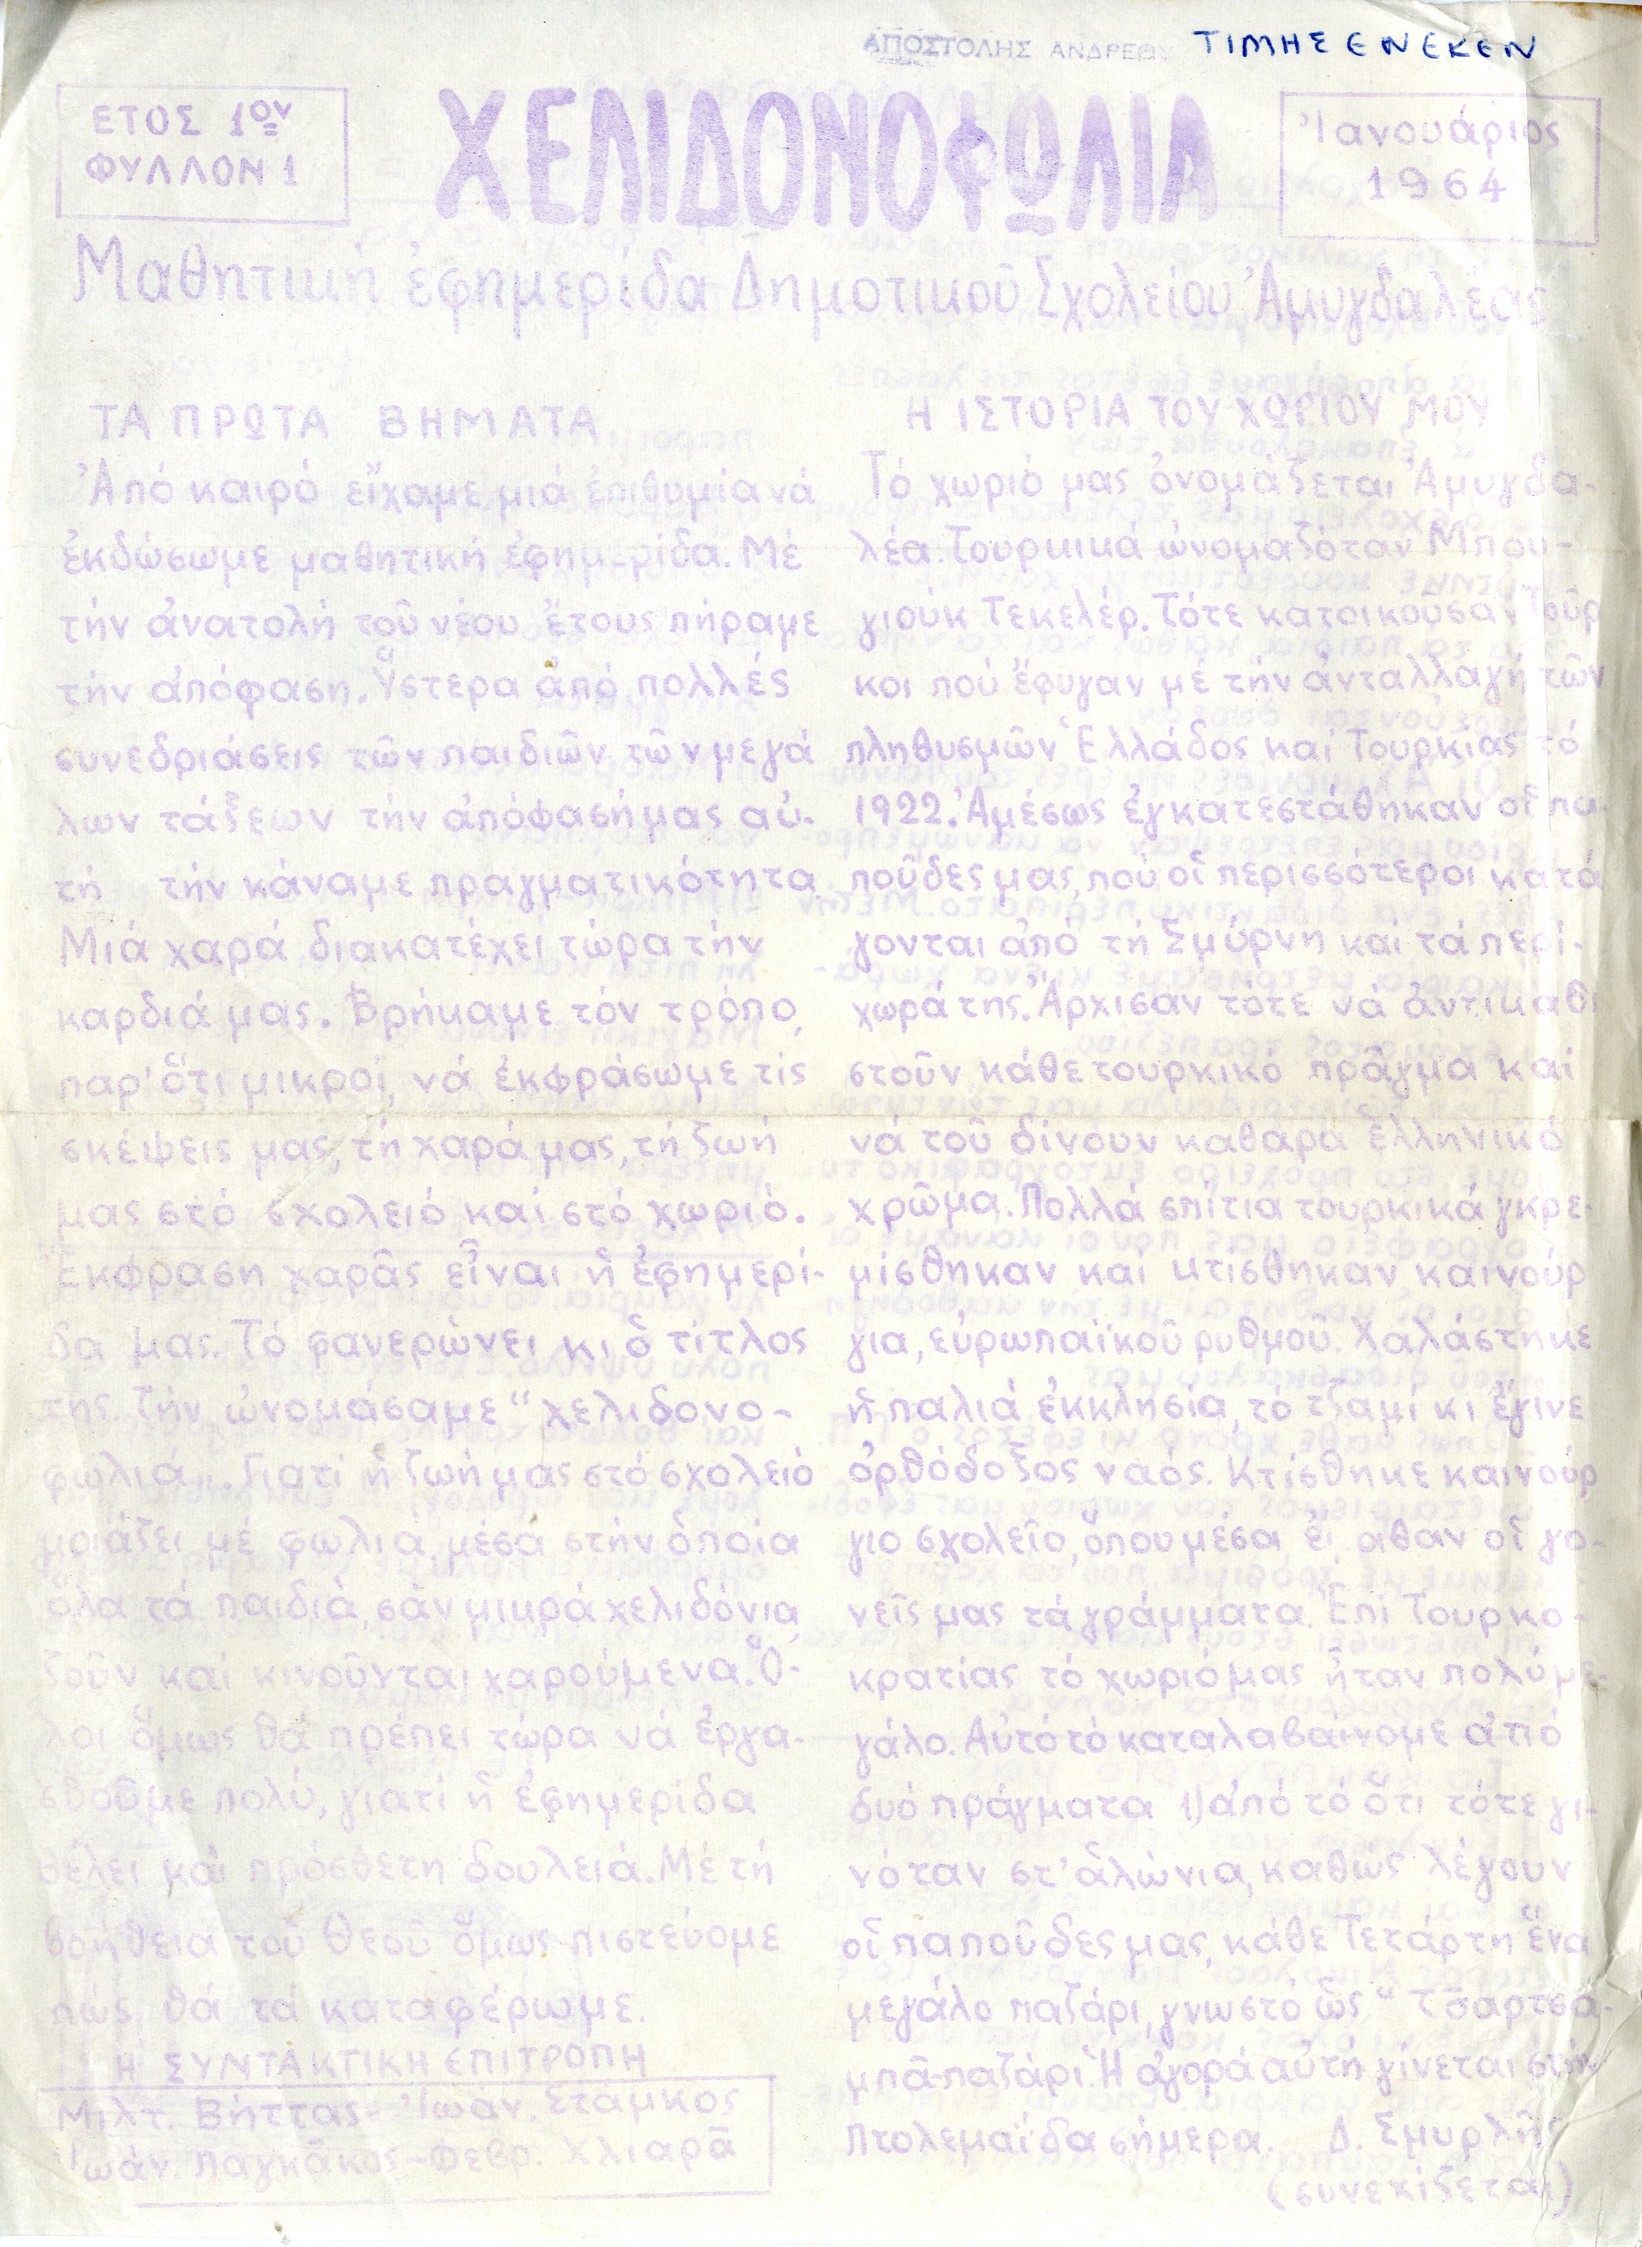 ΑΠΟΣΤΟΛΗΣ ΑΝΔΡΕΟΥ ΤΙΜΗΣ ΕΝΕΚΕΝ
ΕΤΟΣ 1ον
ΦΥΛΛΟΝ 1
ΧΕΛΙΔΟΝΟΦΩΛΙΑ
Ἰανουάριος
1964
Μαθητική ἐφημερίδα Δημοτικοῦ Σχολείου Ἀμυγδαλέας
ΤΑ ΠΡΩΤΑ ΒΗΜΑΤΑ
Ἀπό καιρό εἴχαμε μιά ἐπιθυμία νά
ἐκδώσωμε μαθητική ἐφημερίδα. Μέ
τήν ἀνατολή τοῦ νέου ἔτους πήραμε
τήν ἀπόφαση. Ὕστερα ἀπό πολλές
συνεδριάσεις τῶν παιδιῶν τῶν μεγά
λων τάξεων τήν ἀπόφασή μας αὐ-
τή τήν κάναμε πραγματικότητα.
Μιά χαρά διακατέχει τώρα τήν
καρδιά μας. Βρήκαμε τόν τρόπο,
παρ' ὅτι μικροί, νά ἐκφράσωμε τίς
σκέψεις μας, τή χαρά μας, τή ζωή
μας στό σχολειό καί στό χωριό.
Ἔκφραση χαρᾶς εἶναι ἡ ἐφημερί-
δα μας. Τό φανερώνει κι ὁ τίτλος
της. Τήν ὠνομάσαμε "χελιδονο-
φωλιά". Γιατί ἡ ζωή μας στό σχολειό
μοιάζει μέ φωλιά, μέσα στήν ὁποία
ὅλα τά παιδιά, σάν μικρά χελιδόνια,
ζοῦν καί κινοῦνται χαρούμενα. Ὅ-
λοι ὅμως θά πρέπει τώρα νά ἐργα-
σθοῦμε πολύ, γιατί ἡ ἐφημερίδα
θέλει καί πρόσθετη δουλειά. Μέ τή
βοήθεια τοῦ Θεοῦ ὅμως πιστεύομε
πώς θά τά καταφέρωμε.
Η ΣΥΝΤΑΚΤΙΚΗ ΕΠΙΤΡΟΠΗ
Μιλτ. Βήττας - Ἰωάν. Στάμκος
Ἰωάν. Παγκᾶκος - Φεβρ. Χλιαρᾶ
Η ΙΣΤΟΡΙΑ ΤΟΥ ΧΩΡΙΟΥ ΜΟΥ
Τό χωριό μας ὀνομάζεται Ἀμυγδα-
λέα. Τουρκικά ὠνομαζόταν Μπου-
γιούκ Τεκελέρ. Τότε κατοικοῦσαν Τοῦρ
κοι πού ἔφυγαν μέ τήν ἀνταλλαγή τῶν
πληθυσμῶν Ἑλλάδος καί Τουρκίας τό
1922. Ἀμέσως ἐγκατεστάθηκαν οἱ πα-
ποῦδες μας, πού οἱ περισσότεροι κατά
γονται ἀπό τή Σμύρνη καί τά περί-
χωρά της. Ἄρχισαν τότε νά ἀντικαθι
στοῦν κάθε τουρκικό πρᾶγμα καί
νά τοῦ δίνουν καθαρά ἑλληνικό
χρῶμα. Πολλά σπίτια τουρκικά γκρε-
μίσθηκαν καί κτίσθηκαν καινούρ
για, εὐρωπαϊκοῦ ρυθμοῦ. Χαλάστηκε
ἡ παλιά ἐκκλησία, τό τζαμί κι ἔγινε
ὀρθόδοξος ναός. Κτίσθηκε καινούρ
γιο σχολεῖο, ὅπου μέσα ἔμαθαν οἱ γο-
νεῖς μας τά γράμματα. Ἐπί Τουρκο-
κρατίας τό χωριό μας ἦταν πολύ με-
γάλο. Αὐτό τό καταλαβαίνομε ἀπό
δυό πράγματα 1) ἀπό τό ὅτι τότε γι-
νόταν στ' ἁλώνια, καθώς λέγουν
οἱ παποῦδες μας, κάθε Τετάρτη ἕνα
μεγάλο παζάρι, γνωστό ὡς "Τσαρτσα-
μπᾶ-παζάρι". Ἡ ἀγορά αὐτή γίνεται στήν
Πτολεμαΐδα σήμερα. Δ. Σμυρλῆς
(συνεχίζεται)